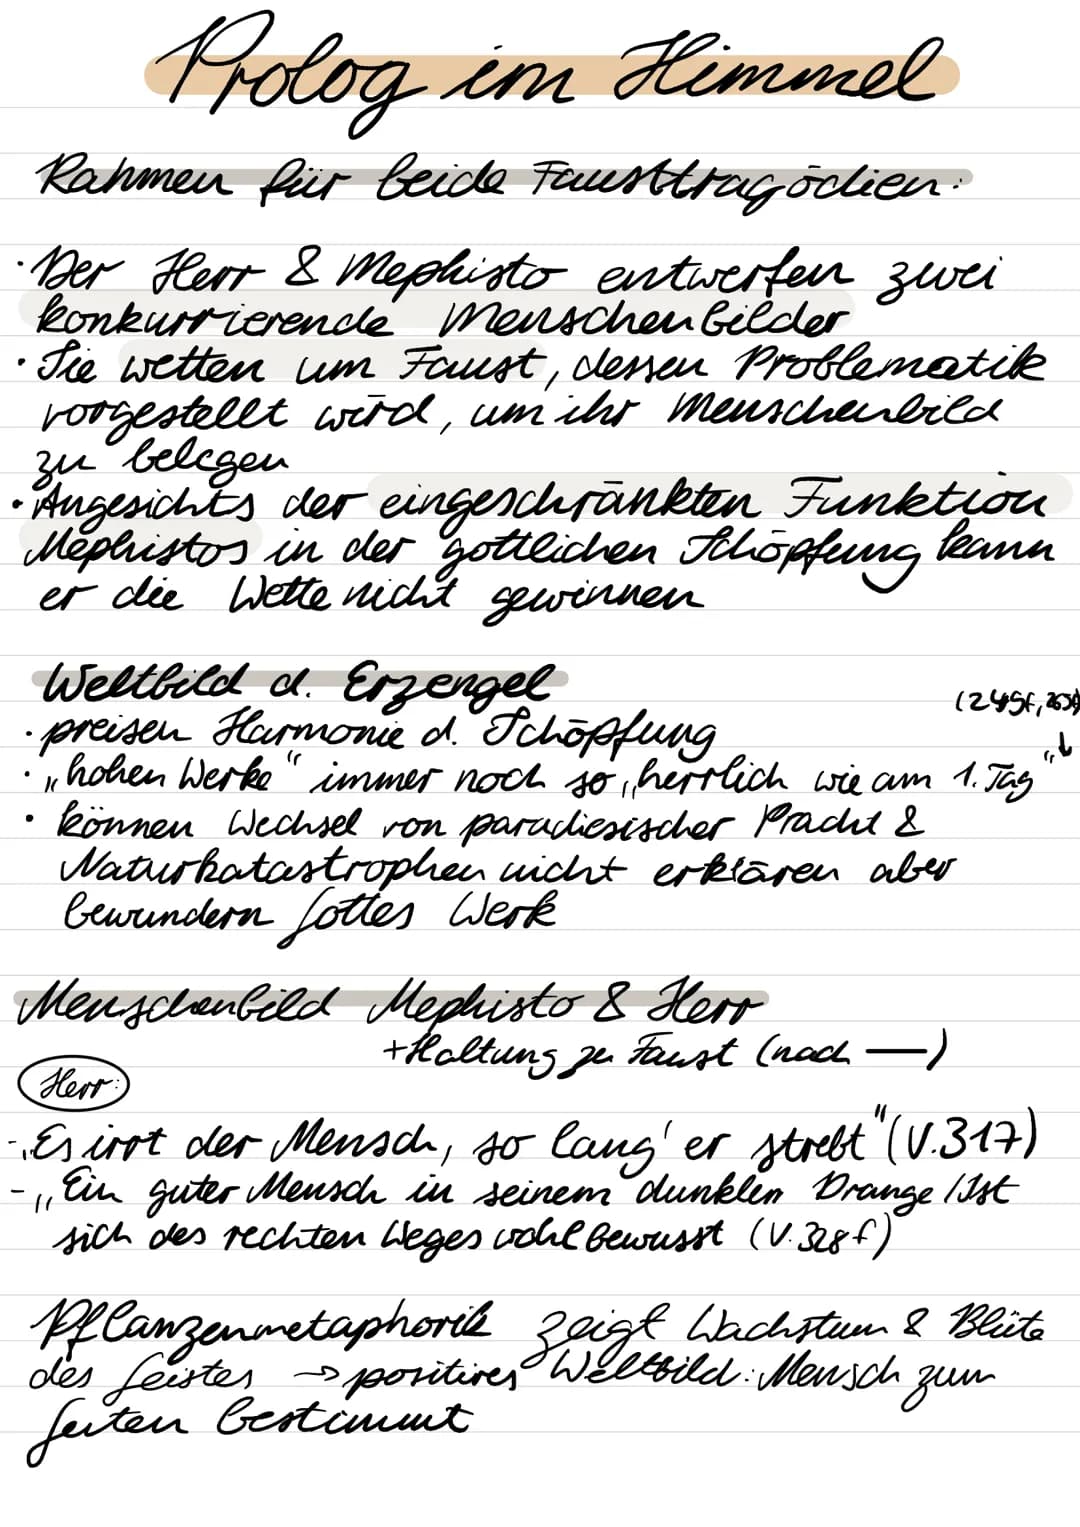 Prolog im Himmel
Rahmen für beide Fausttragödien:
· Der Herr & Mephisto entwerfen zwei
konkurrierende Menschenbilder
· Sie wetten um Faust, dessen Problematik
vorgestellt wird, um ihr Menschenbild
zu belegen
· Angesichts der eingeschränkten Funktion
Mephistos in der göttlichen Schöpfung kann
er die Wette nicht gewinnen
Weltbild d. Erzengel
· preisen Harmonie d. Schöpfung
· „hohen Werke“ immer noch so „herrlich wie am 1. Tag“ ↓
· können Wechsel von paradiesischer Pracht &
Naturkatastrophen nicht erklären aber
bewundern Gottes Werk
Menschenbild Mephisto & Herr
+Haltung zu Faust (nach —)
Herr:
- „Es irrt der Mensch, so lang' er strebt“ (V.317)
- „Ein guter Mensch in seinem dunklen Drange / Ist
sich des rechten Weges wohl bewusst (V.328f)
Pflanzenmetaphorik zeigt Wachstum & Blüte
des Geistes → positives Weltbild: Mensch zum
Guten bestimmt